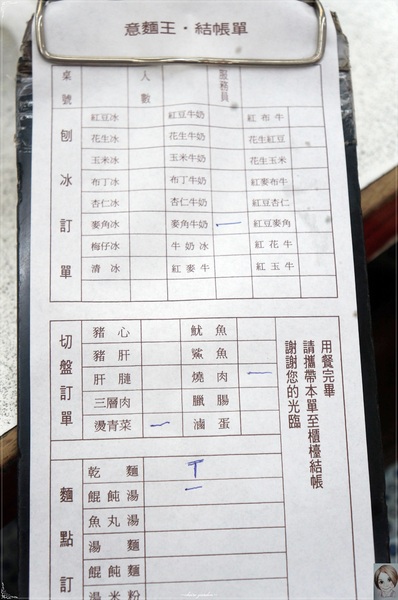 意麵王·結帳單
桌號 人數 服務員
刨冰訂單
紅豆冰 紅豆牛奶 紅布牛
花生冰 花生牛奶 花生紅豆
玉米冰 玉米牛奶 花生玉米
布丁冰 布丁牛奶 紅麥布牛
杏仁冰 杏仁牛奶 紅豆杏仁
麥角冰 麥角牛奶 一 紅豆麥角
梅仔冰 牛奶冰 紅花牛
清冰 紅麥牛 紅玉牛
切盤訂單
豬心 魷魚
豬肝 鯊魚
肝腱 燒肉 一
三層肉 臘腸
燙青菜 一 滷蛋
用餐完畢
請攜帶本單至櫃檯結帳
謝謝您的光臨
麵點訂
乾麵 T
餛飩湯 一
魚丸湯
湯麵
餛飩麵
湯米粉